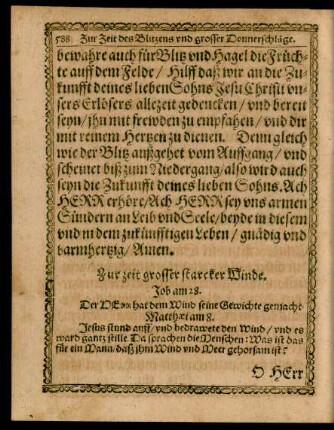 588 Zur Zeit des Blitzens vnd grosser Donnerschläge.
bewahre auch für Blitz vnd Hagel die Früch-
te auff dem Felde / Hilff daß wir an die Zu-
kunfft deines lieben Sohns Jesu Christi vn-
sers Erlösers allezeit gedencken / vnd bereit
seyn / jhn mit frewden zu empfahen / vnd dir
mit reinem Hertzen zu dienen. Denn gleich
wie der Blitz außgehet vom Auffgang / vnd
scheinet biß zum Niedergang / also wird auch
seyn die Zukunfft deines lieben Sohns. Ach
HERR erhöre / Ach HERR sey vns armen
Sündern an Leib vnd Seele / beyde in diesem
vnd in dem zukünfftigen Leben / gnädig vnd
barmhertzig / Amen.
Zur zeit grosser starcker Winde.
Job am 28.
Der HErr hat dem Wind seine Gewichte gemacht.
Matthæi am 8.
Jesus stund auff / vnd bedrawete den Wind / vnd es
ward gantz stille Da sprachen die Menschen: Was ist das
für ein Mann / daß jhm Wind vnd Meer gehorsam ist?
O HErr